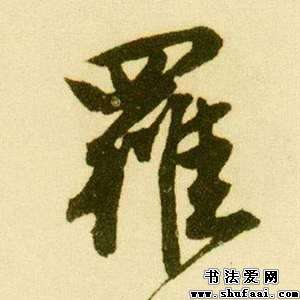 羅
书法爱网
www.shufaai.com